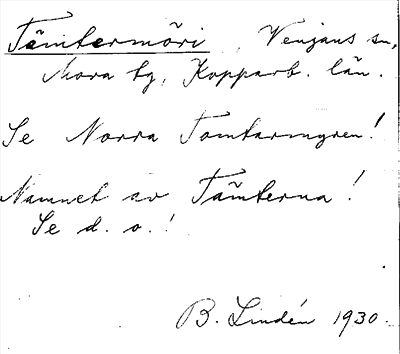 Tämtermöri, Venjans sn,
Mora tg, Kopparb. län.
Se Norra Tomtarmyren!
Namnet av Tämterna!
Se d. o.!
B. Lindén 1930.